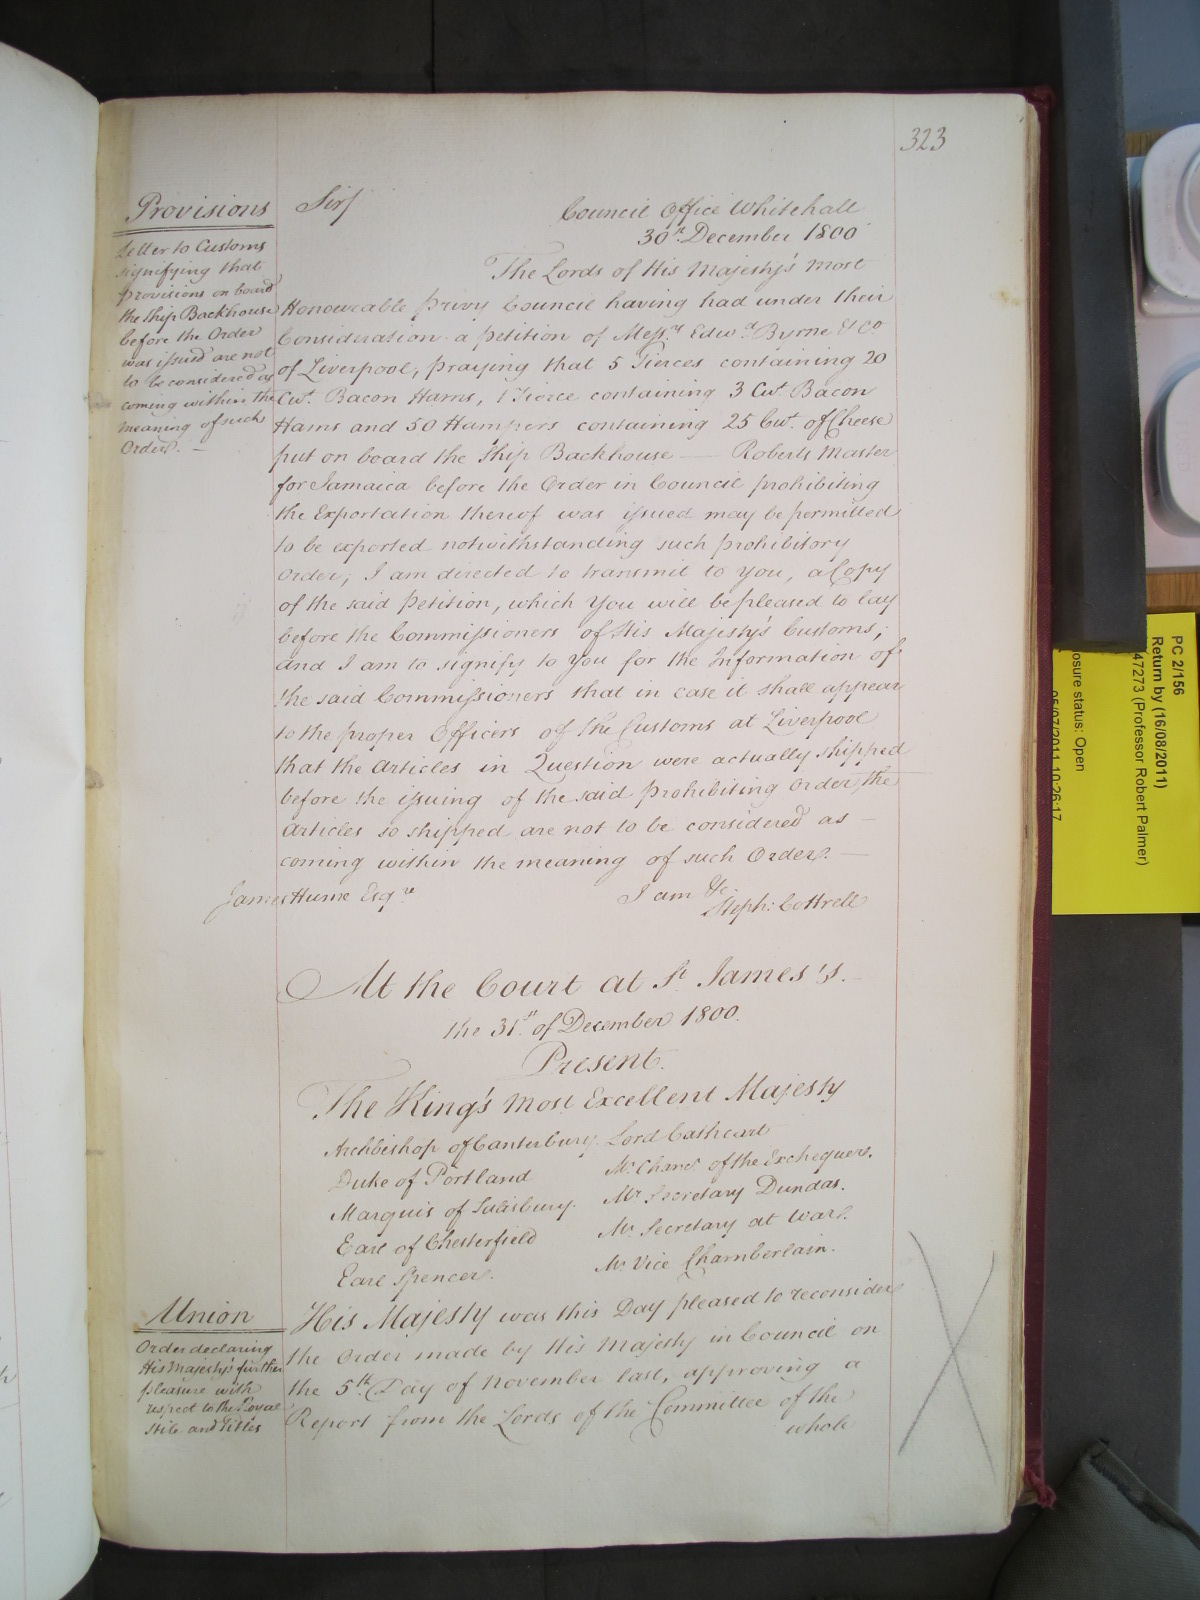 323
Provisions
Letter to Customs
signifying that
provisions on board
the ship Backhouse
before the Order
was issued are not
to be considered as
coming within the
meaning of such
Order. —
Sir,
Council Office Whitehall
30th December 1800
The Lords of His Majesty's most
Honourable Privy Council having had under their
Consideration a petition of Messrs Edwd Byrne & Co
of Liverpool, praying that 5 Tierces containing 20
Cwt. Bacon Hams, 1 Tierce containing 3 Cwt. Bacon
Hams and 50 Hampers containing 25 Cwt. of Cheese
put on board the Ship Backhouse —— Roberts Master
for Jamaica before the Order in Council prohibiting
the Exportation thereof was issued may be permitted
to be exported notwithstanding such prohibitory
Order; I am directed to transmit to You, a Copy
of the said Petition, which You will be pleased to lay
before the Commissioners of His Majesty's Customs;
and I am to signify to You for the Information of
the said Commissioners that in case it shall appear
to the proper Officers of the Customs at Liverpool
that the Articles in Question were actually shipped
before the issuing of the said prohibiting Order, the
Articles so shipped are not to be considered as —
coming within the meaning of such Order. —
James Hume Esqre
I am &c.
Steph: Cottrell
At the Court at St. James's. —
the 31st of December 1800.
Present.
The King's most Excellent Majesty
Archbishop of Canterbury. Lord Cathcart
Duke of Portland Mr. Chanr of the Exchequer.
Marquis of Salisbury. Mr Secretary Dundas.
Earl of Chesterfield Mr Secretary at War.
Earl Spencer. Mr Vice Chamberlain.
Union
Order declaring
His Majesty's further
pleasure with
respect to the Royal
Stile and Titles
His Majesty was this Day pleased to reconsider
the Order made by His Majesty in Council on
the 5th Day of November last, approving a
Report from the Lords of the Committee of the
whole
PC 2/156
Return by (16/08/2011)
47273 (Professor Robert Palmer)
osure status: Open
05/07/2011 10:26:17